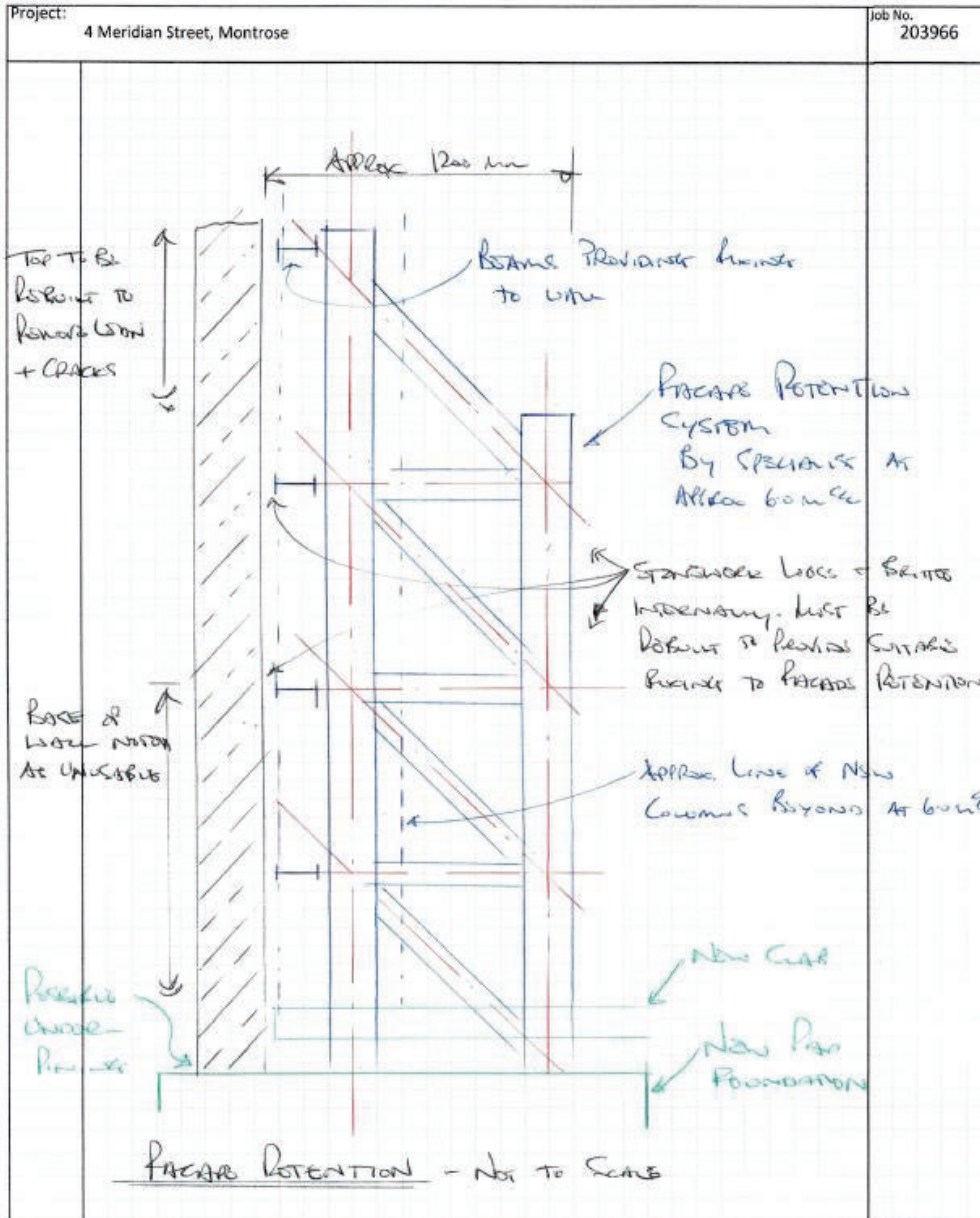 Project:
4 Meridian Street, Montrose
Job No.
203966
APPROX 1200 mm
TOP TO BE
REBUILT TO
REMOVE LEAN
+ CRACKS
BEAMS PROVIDING FIXINGS
TO WALL
FACADE RETENTION
SYSTEM
BY SPECIALIST AT
APPROX 6.0m c/c
STONEWORK LOOSE + BRITTLE
INTERNALLY. MUST BE
REBUILT TO PROVIDE SUITABLE
FIXINGS TO FACADE RETENTION
BASE OF
WALL NOTED
AS UNUSABLE
APPROX LINE OF NEW
COLUMNS BEYOND AT 6.0m
POSSIBLE
UNDER-
PINNING
NEW SLAB
NEW PAD
FOUNDATION
FACADE RETENTION - NOT TO SCALE